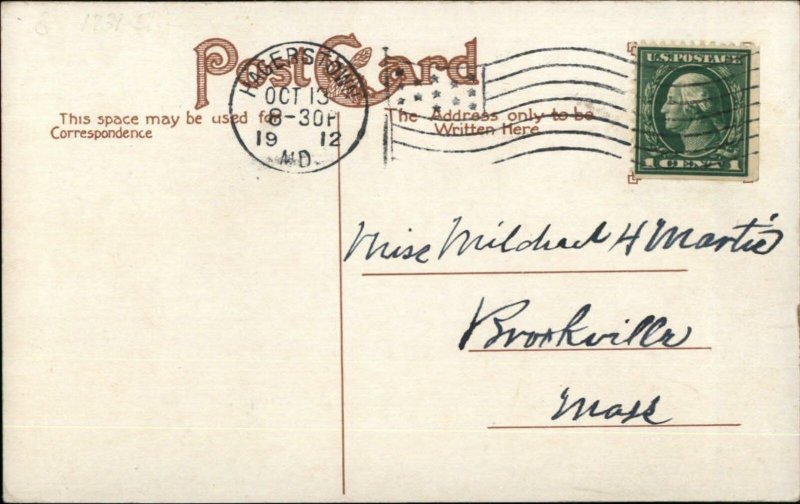 Post Card
HAGERSTOWN
OCT 13
8-30P
19 12
MD.
U.S. POSTAGE
1 CENT 1
This space may be used for
Correspondence
The Address only to be
Written Here
Miss Mildred H Martin
Brookville
Mass